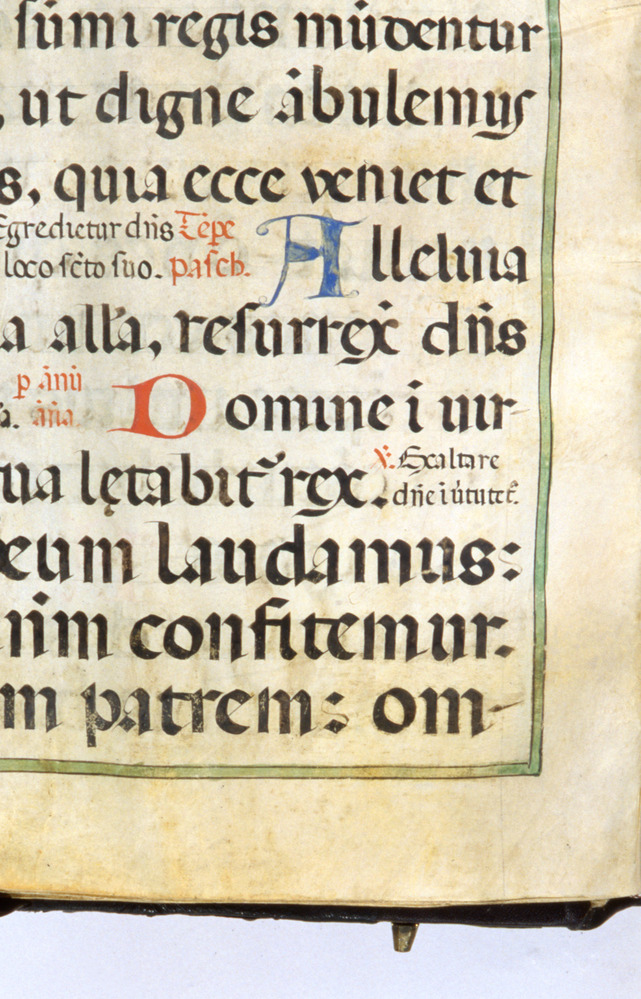 sūmi regis mūdentur
, ut digne âbulemus
s, quia ecce veniet et
Egredietur dn̄s Tēpe
loco sc̄to suo. pasch.
Alleluia
a all'a, resurrex̄ dn̄s
p ānū
a. āña
Domine ī uir-
ua lętabit᷒ rex.
℣. Exaltare
dn̄e ī ūtute t̄.
eum laudamus:
nim confitemur.
m patrem: om-